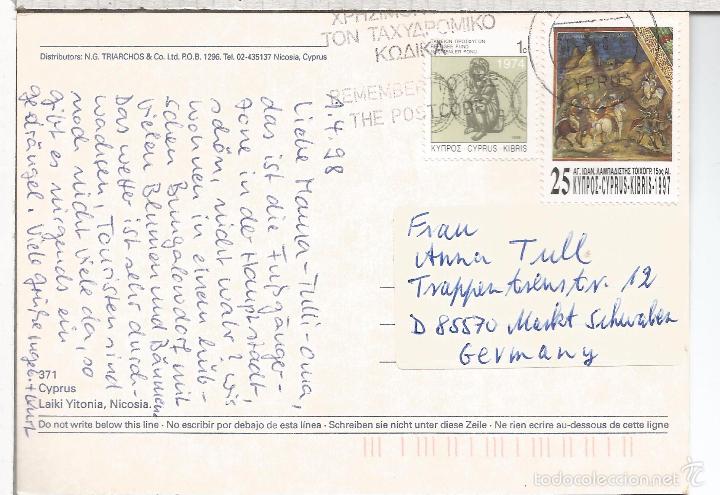 Distributors: N.G. TRIARCHOS & Co. Ltd. P.O.B. 1296. Tel. 02-435137 Nicosia, Cyprus
ΤΟΝ ΤΑΧΥΔΡΟΜΙΚΟ
ΚΩΔΙΚΑ
REMEMBER
THE POSTCODE
CYPRUS
ΤΑΜΕΙΟΝ ΠΡΟΣΦΥΓΩΝ
REFUGEE FUND
1c
1974
ΚΥΠΡΟΣ CYPRUS KIBRIS
1998
ΑΓ. ΙΩΑΝ. ΛΑΜΠΑΔΙΣΤΗΣ ΤΟΙΧΟΓΡ. 15ος ΑΙ.
25 ΚΥΠΡΟΣ·CYPRUS·KIBRIS·1997
4.98
Liebe Mama-Tulli-Oma,
das ist die Fußgänger-
zone in der Hauptstadt,
schön, nicht wahr? Wir
wohnen in einem hüb-
schen Bungalowdorf mit
vielen Blumen und Bäumen.
Das Wetter ist sehr durch-
wachsen, Touristen sind
noch nicht viele da, so
gibt es nirgends ein
gedrängel. Viele Grüße Ingeb. + Kurt
Frau
Anna Tull
Trappentreustr. 12
D 85570 Markt Schwaben
Germany
371
Cyprus
Laiki Yitonia, Nicosia.
Do not write below this line · No escribir por debajo de esta línea · Schreiben sie nicht unter diese Zeile · Ne rien ecrire au-dessous de cette ligne
todocoleccion